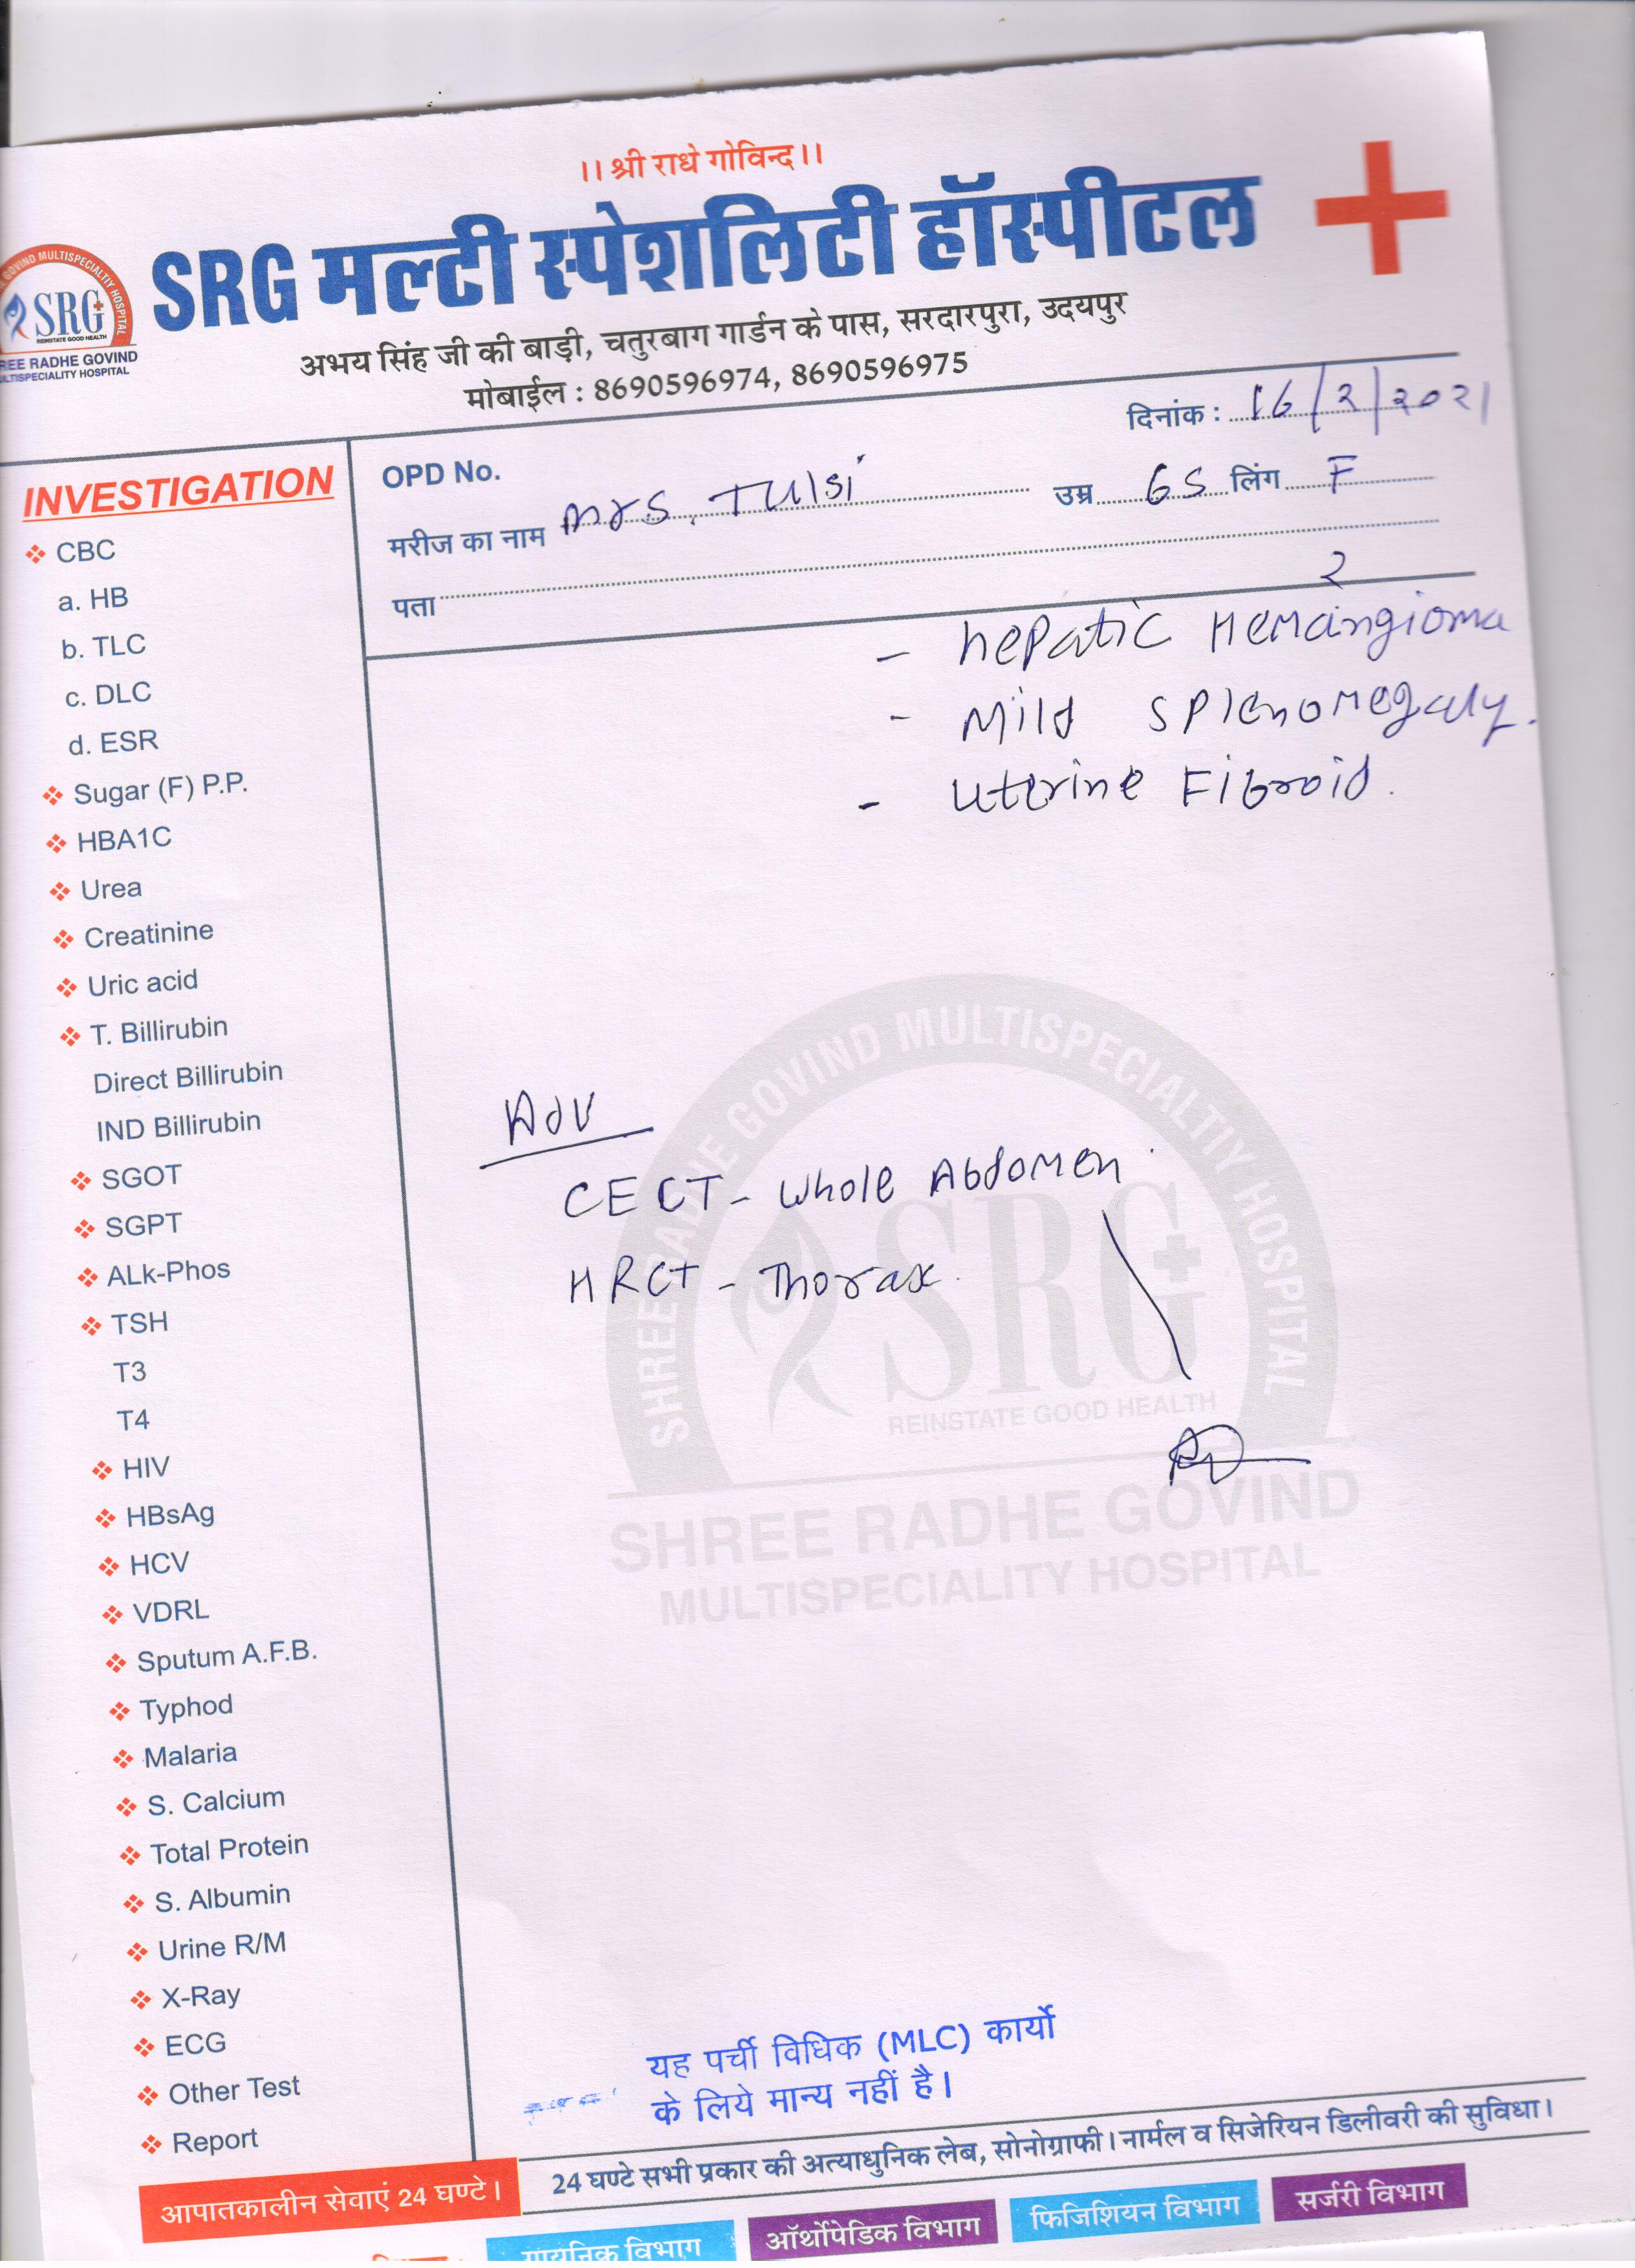 ।। श्री राधे गोविन्द ।।
SRG मल्टी स्पेशलिटी हॉस्पीटल
GOVIND MULTISPECIALTIY HOSPITAL
SRG
REINSTATE GOOD HEALTH
REE RADHE GOVIND
LTISPECIALITY HOSPITAL
अभय सिंह जी की बाड़ी, चतुरबाग गार्डन के पास, सरदारपुरा, उदयपुर
मोबाईल : 8690596974, 8690596975
दिनांक : 16/2/2021
OPD No.
मरीज का नाम Mrs. Tulsi उम्र 65 लिंग F
पता
INVESTIGATION
CBC
a. HB
b. TLC
c. DLC
d. ESR
Sugar (F) P.P.
HBA1C
Urea
Creatinine
Uric acid
T. Billirubin
Direct Billirubin
IND Billirubin
SGOT
SGPT
ALk-Phos
TSH
T3
T4
HIV
HBsAg
HCV
VDRL
Sputum A.F.B.
Typhod
Malaria
S. Calcium
Total Protein
S. Albumin
Urine R/M
X-Ray
ECG
Other Test
Report
- Hepatic Hemangioma
- Mild Splenomegaly.
- Uterine Fibroid.
Adv
CECT - Whole Abdomen
HRCT - Thorax.
SHREE RADHE GOVIND MULTISPECIALTIY HOSPITAL
SRG
REINSTATE GOOD HEALTH
SHREE RADHE GOVIND
MULTISPECIALITY HOSPITAL
यह पर्ची विधिक (MLC) कार्यो
के लिये मान्य नहीं है।
24 घण्टे सभी प्रकार की अत्याधुनिक लेब, सोनोग्राफी। नार्मल व सिजेरियन डिलीवरी की सुविधा।
आपातकालीन सेवाएं 24 घण्टे।
गायनिक विभाग
ऑर्थोपेडिक विभाग
फिजिशियन विभाग
सर्जरी विभाग